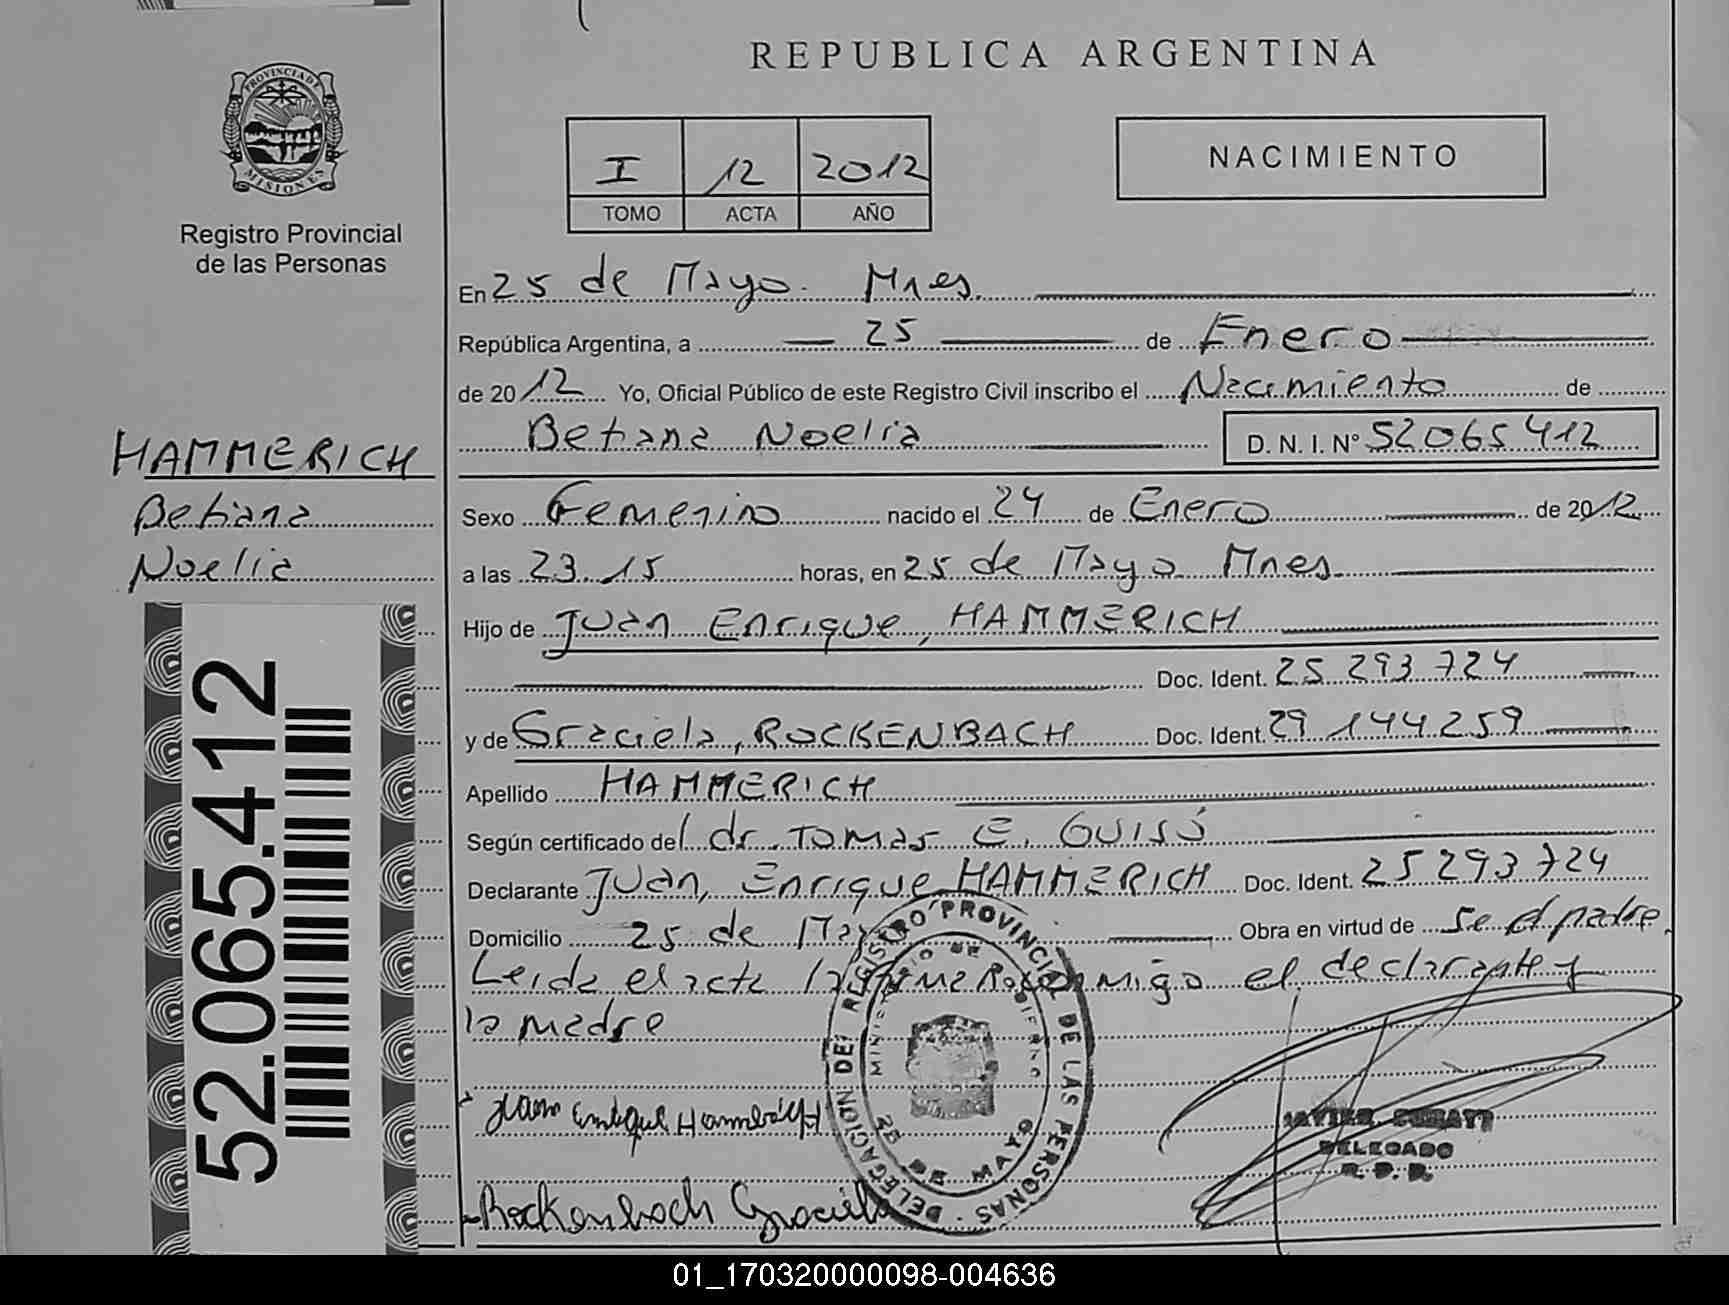 REPUBLICA ARGENTINA
PROVINCIA DE MISIONES
Registro Provincial
de las Personas
I 12 2012
TOMO ACTA AÑO
NACIMIENTO
En 25 de Mayo. Mnes.
República Argentina, a 25 de Enero
de 2012 Yo, Oficial Público de este Registro Civil inscribo el Nacimiento de
Betiana Noelia D. N. I. Nº 52065412
HAMMERICH
Betiana
Noelia
52.065.412
Sexo Femenino nacido el 24 de Enero de 2012
a las 23.15 horas, en 25 de Mayo Mnes.
Hijo de Juan Enrique, HAMMERICH
Doc. Ident. 25 293 724
y de Graciela, ROCKENBACH Doc. Ident. 29 144 259
Apellido HAMMERICH
Según certificado del dr. Tomas E. GUISÓ
Declarante Juan, Enrique HAMMERICH Doc. Ident. 25 293 724
Domicilio 25 de Mayo Obra en virtud de Se el padre.
Leida el acta la firmaron conmigo el declarante y
la madre
Juan Enrique Hammerich H
Rockenbach Graciela
DELEGACION DEL REGISTRO PROVINCIAL DE LAS PERSONAS
MINISTERIO DE GOBIERNO
25 DE MAYO
JAVIER
DELEGADO
R. P. P.
01_170320000098-004636